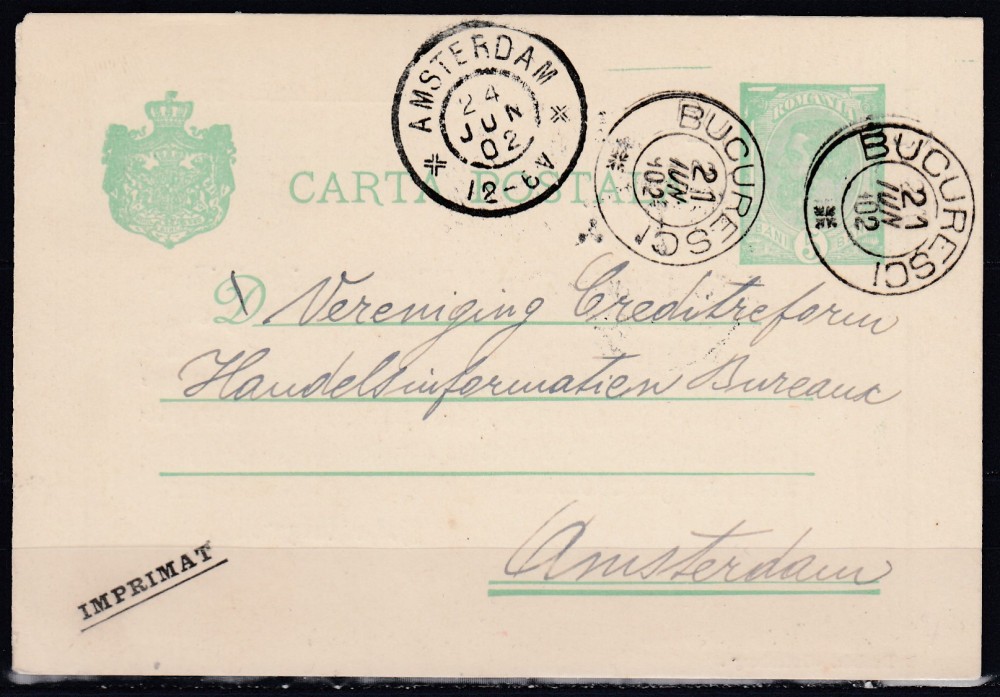 AMSTERDAM
24
JUN
02
12-6V
BUCURESCI
21
IUN
902
ROMANIA
BANI 5 BANI
BUCURESCI
21
IUN
902
CARTA POSTALA
D Vereniging Creditreform
Handelsinformatien Bureaux
Amsterdam
IMPRIMAT